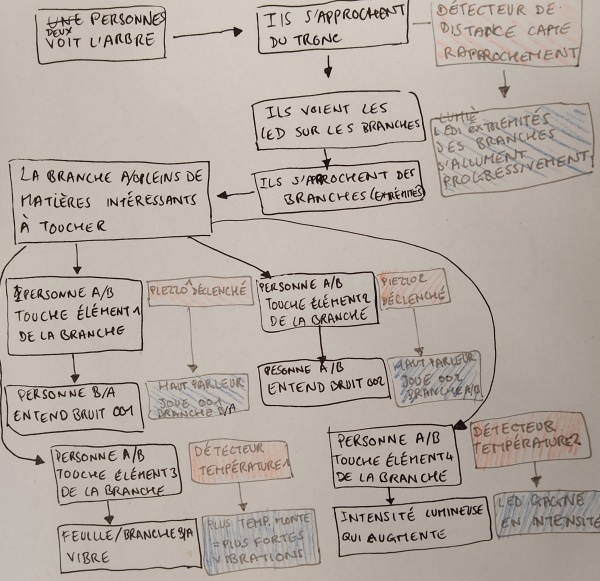 UNE PERSONNES
DEUX
VOIT L'ARBRE
ILS S'APPROCHENT
DU TRONC
DÉTECTEUR DE
DISTANCE CAPTE
RAPPROCHEMENT
ILS VOIENT LES
LED SUR LES BRANCHES
LUMIÈ
LED EXTREMITÉS
DES BRANCHES
S'ALLUMENT
PROGRESSIVEMENT
ILS S'APPROCHENT DES
BRANCHES (EXTRÉMITÉS)
LA BRANCHE A/B PLEINS DE
MATIÈRES INTÉRESSANTS
À TOUCHER
PERSONNE A/B
TOUCHE ÉLÉMENT 1
DE LA BRANCHE
PIEZZO 1 DÉCLENCHÉ
PERSONNE A/B
TOUCHE ÉLÉMENT 2
DE LA BRANCHE
PIEZZO 2
DÉCLENCHÉ
PERSONNE B/A
ENTEND BRUIT 001
HAUT PARLEUR
JOUE 001
BRANCHE B/A
PESONNE A/B
ENTEND BRUIT 002
HAUT PARLEUR
JOUE 002
BRANCHE A/B
PERSONNE A/B
TOUCHE ÉLÉMENT 3
DE LA BRANCHE
DÉTECTEUR
TEMPÉRATURE 1
PERSONNE A/B
TOUCHE ÉLÉMENT 4
DE LA BRANCHE
DÉTECTEUR
TEMPÉRATURE 2
FEUILLE/BRANCHE B/A
VIBRE
PLUS TEMP. MONTE
= PLUS FORTES
VIBRATIONS
INTENSITÉ LUMINEUSE
QUI AUGMENTE
LED GAGNE
EN INTENSITÉ